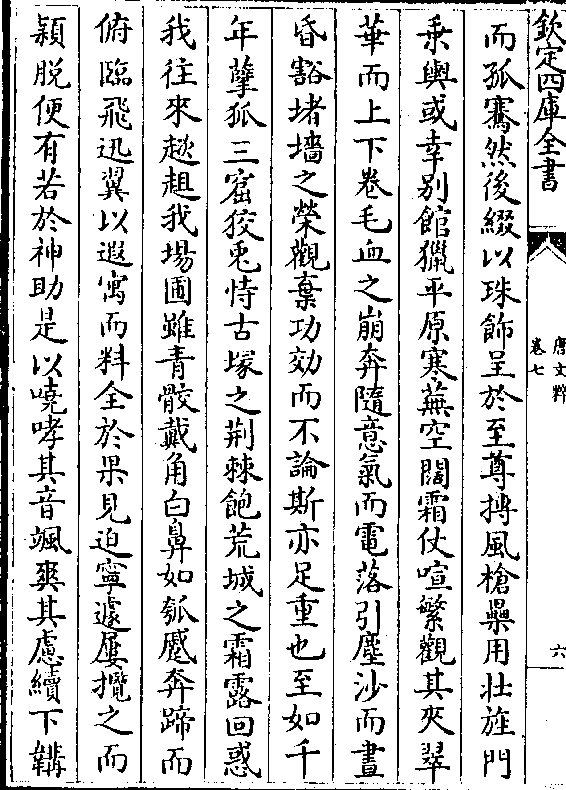 欽定四庫全書
唐文粹
卷七
六
而孤騫然後綴以珠飾呈於至尊搏風槍纍用壯旌門
乘輿或幸别館獵平原寒蕪空闊霜仗喧繁觀其夾翠
華而上下卷毛血之崩奔隨意氣而電落引塵沙而晝
昏豁堵墻之榮觀棄功効而不論斯亦足重也至如千
年孽狐三窟狡兎恃古塚之荆棘飽荒城之霜露回惑
我往來趑趄我場圃雖青骹戴角白鼻如瓠蹙奔蹄而
俯臨飛迅翼以遐寓而料全於果見迫寧遽屢攬之而
穎脱便有若於神助是以嘵哮其音颯爽其慮續下韝